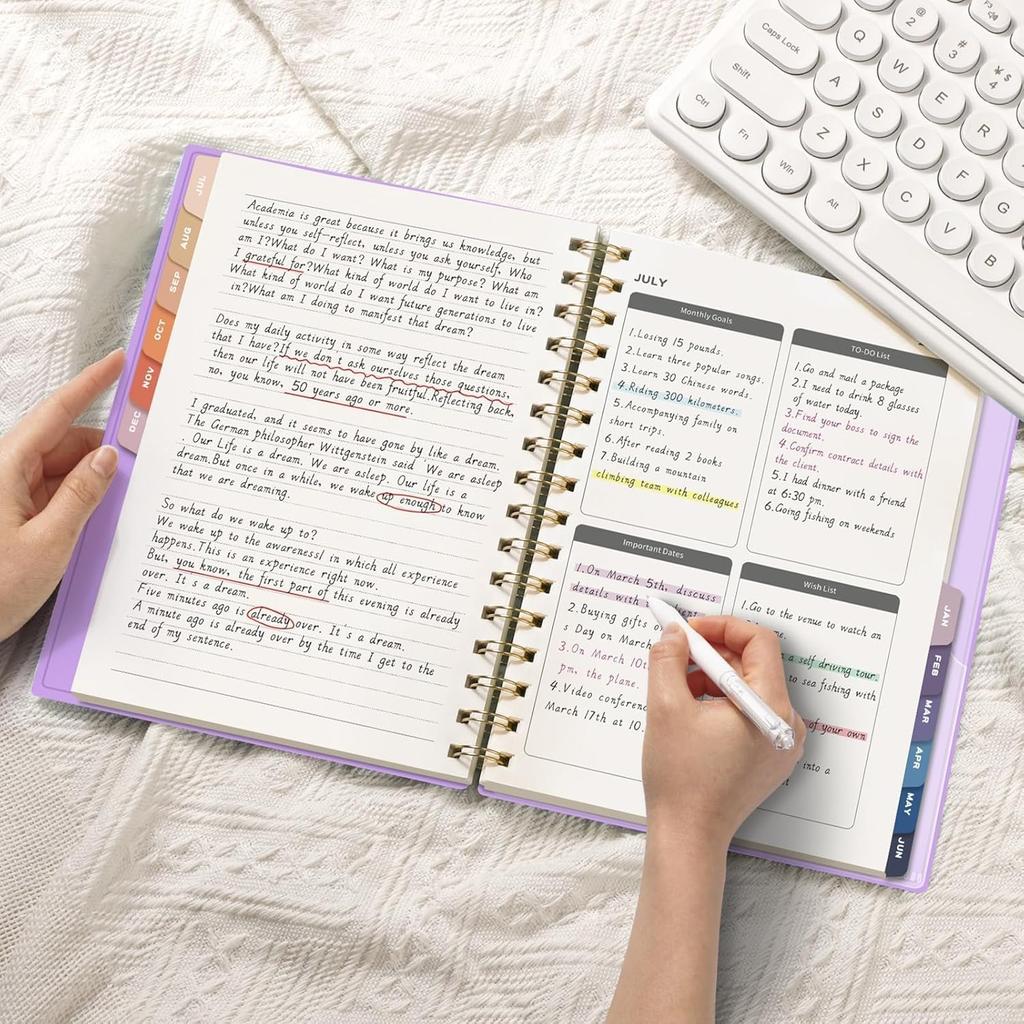 JUL
AUG
SEP
OCT
NOV
DEC
Academia is great because it brings us knowledge, but
unless you self-reflect, unless you ask yourself, Who
am I?What do I want? What is my purpose? What am
I grateful for?What kind of world do I want to live in?
What kind of world do I want future generations to live
in?What am I doing to manifest that dream?
Does my daily activity in some way reflect the dream
that I have?If we don t ask ourselves those questions,
then our life will not have been fruitful.Reflecting back,
no, you know, 50 years ago or more.
I graduated, and it seems to have gone by like a dream.
The German philosopher Wittgenstein said We are asleep
. Our Life is a dream. We are asleep. Our life is a
dream.But once in a while, we wake up enough to know
that we are dreaming.
So what do we wake up to?
We wake up to the awareness! in which all experience
happens.This is an experience right now.
But, you know, the first part of this evening is already
over. It s a dream.
Five minutes ago is already over. It s a dream.
A minute ago is already over by the time I get to the
end of my sentence.
JULY
Monthly Goals
1.Losing 15 pounds.
2.Learn three popular songs.
3.Learn 30 Chinese words.
4.Riding 300 kilometers.
5.Accompanying family on
short trips.
6.After reading 2 books
7.Building a mountain
climbing team with colleagues
TO-DO List
1.Go and mail a package
2.I need to drink 8 glasses
of water today.
3.Find your boss to sign the
document.
4.Confirm contract details with
the client.
5.I had dinner with a friend
at 6:30 pm.
6.Going fishing on weekends
Important Dates
1.On March 5th, discuss
details with
2.Buying gifts
s Day on March
3.On March 10th
pm, the plane.
4.Video conference
March 17th at 10.
Wish List
1.Go to the venue to watch an
a self driving tour.
to sea fishing with
of your own
into a
JAN
FEB
MAR
APR
MAY
JUN
Caps Lock
Shift
Ctrl
Fn
Win
Alt
Q
W
E
R
A
S
D
F
G
Z
X
C
V
B
@
2
#
3
¥ $
4
F3